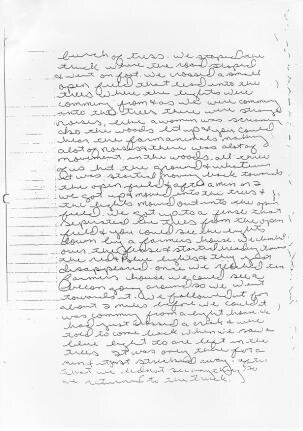 bunch of trees. We stoped our
truck where the road stoped
& went on foot. We crossed a small
open field that lead into the
trees where the lights were
comming from & as we were comming
into the trees there were strange
noises, like a woman was screaming
also the woods lit up & you could
hear the farm animals making
alot of noises & there was alot of
movement in the woods. all three
of us hid the ground & whatever
it was started moving back towards
the open field & after a min or 2
we got up & moved into the trees &
the lights moved out into the open
field. We got up to a fence that
seperated the trees from the open
field & you could see the lights
down by a farmers house. We climbed
over the fence & started walking toward
the red & blue lights & they just
disappeared. once we reached the
farmers house we could see a
beacon going around so we went
towards it. We followed it for
about 2 miles before we could
was comming from a light house. We
had just passed a creek & were
told to come back when we saw a
blue light to are left in the
trees. It was only there for a
min & just streaked away. after
that we didnt see anything so
we returned to the truck.